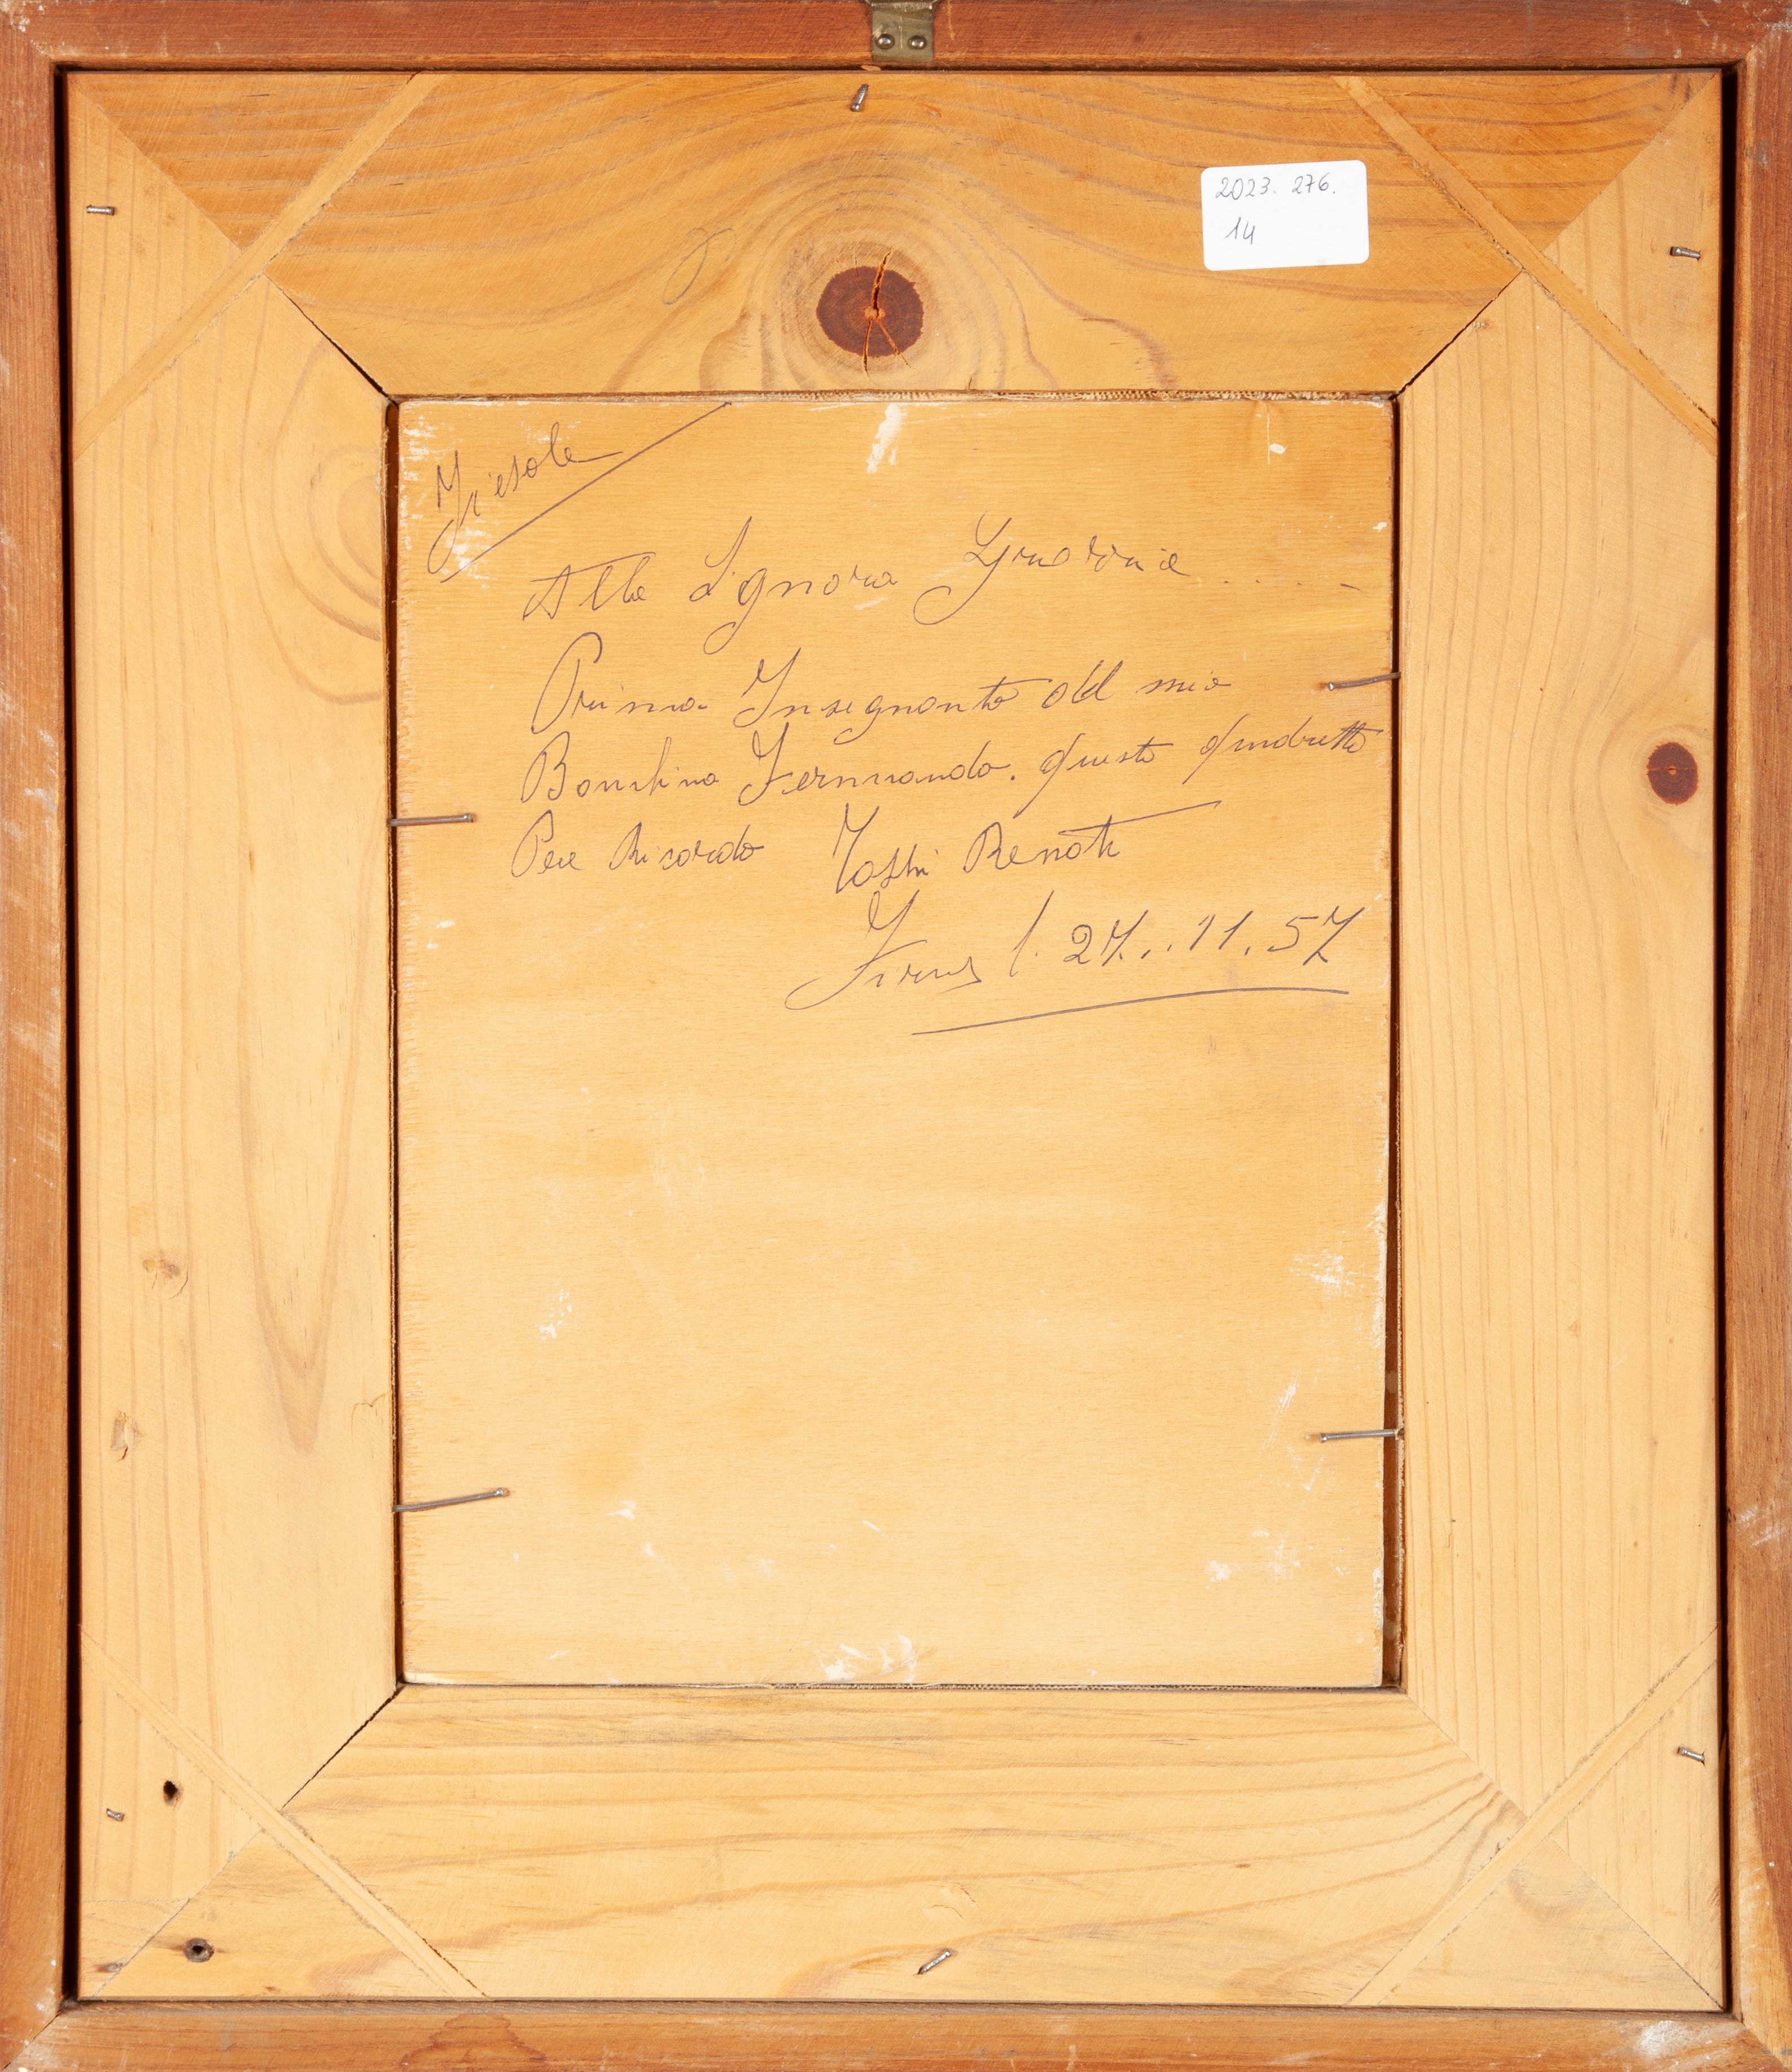 2023. 276.
14
Fiesole
Alla Signora
Prima Insegnante del mio
Bambino Fernando. Questo Quadretto
Per Ricordo Renato
Firenze l. 27..11.57